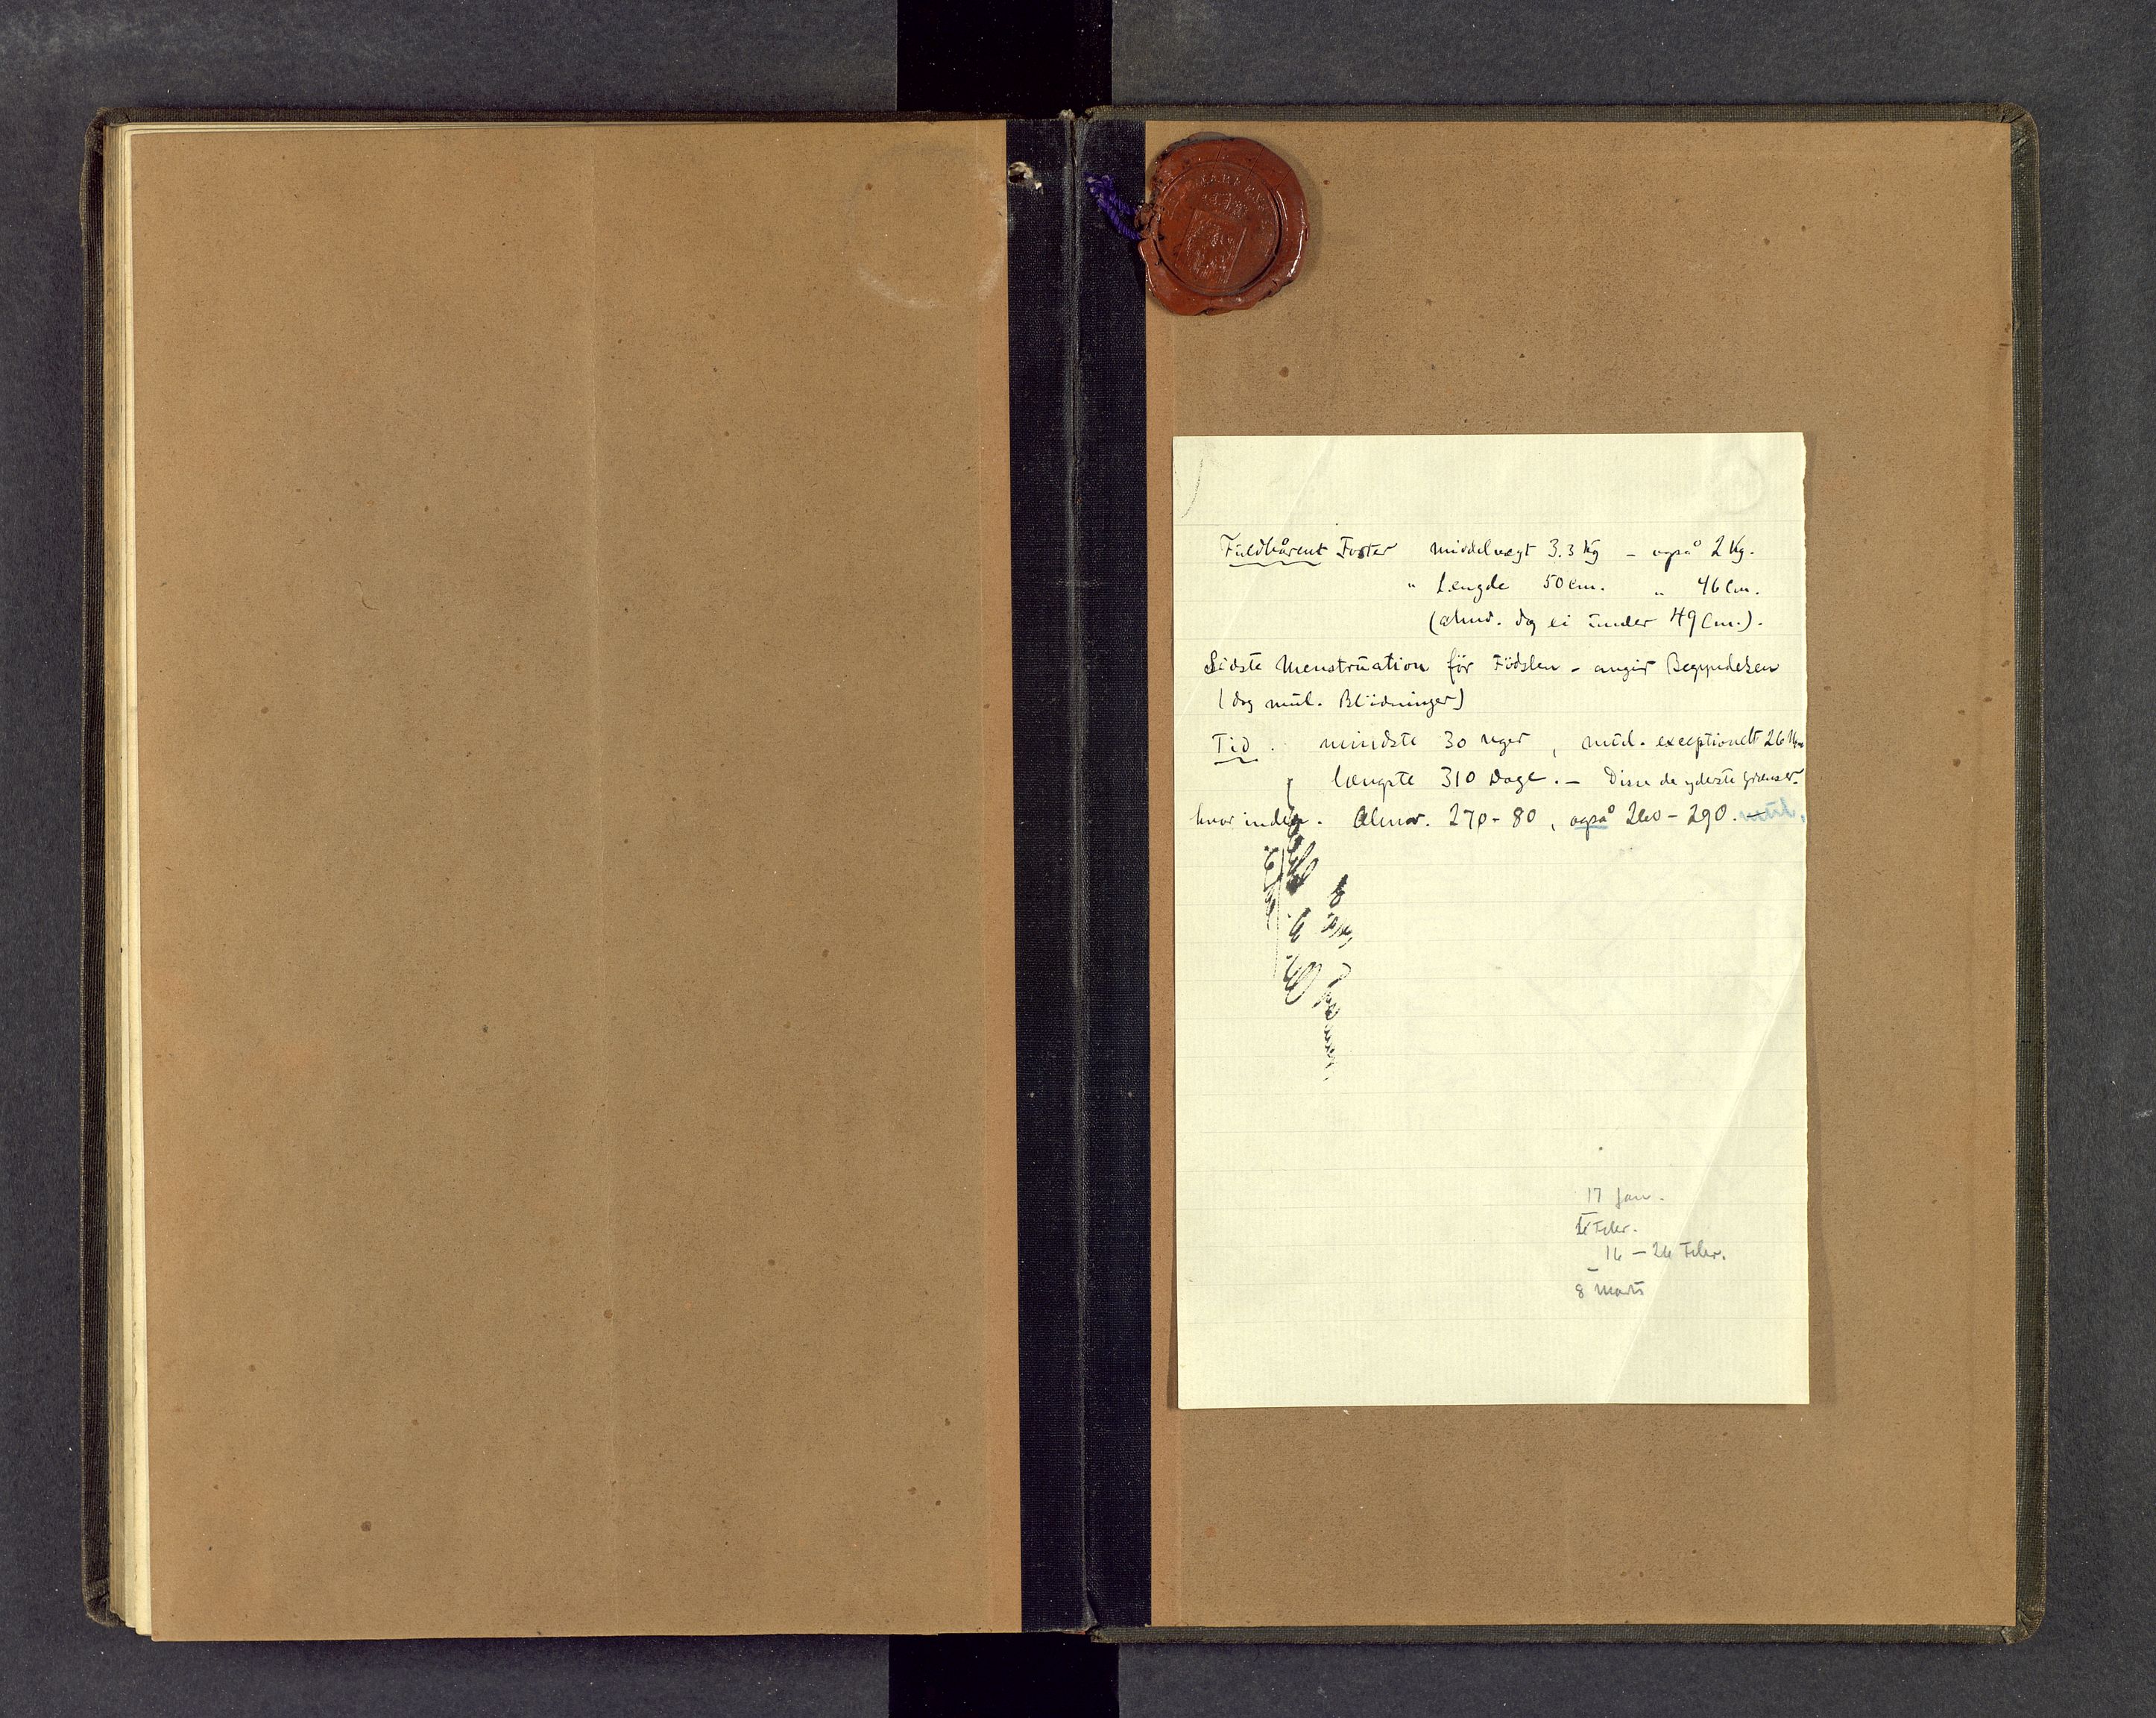 Fuldbårent Foster middelvegt 3.3 Kg – også 2 Kg.
" Længde 50 cm. " 46 Cm.
(almd. dog ei under 49 Cm.).
Sidste Menstruation för Födslen – angir Begyndelsen
(dog mul. Blödninger)
Tid. mindste 30 uger, mul. exceptionelt 26
længste 310 Dage. – Disse de yderste Grænser
hvor inden. Almd. 270-80, også 260-290. mul.
17 Jan.
Febr.
16 – 26 Febr.
8 Marts